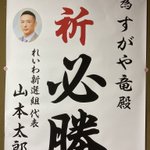 為すがや竜殿
祈必勝
れいわ新選組 代表
山本太郎